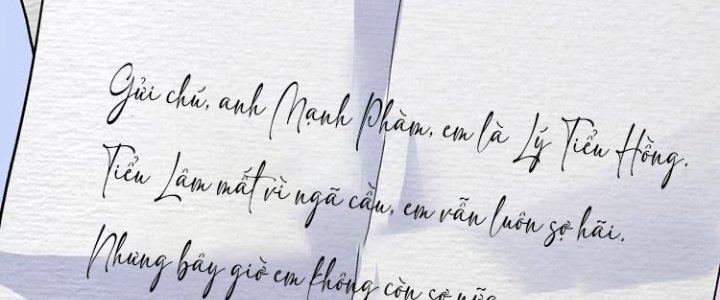 Gửi chú, anh Mạnh Phàm, em là Lý Tiểu Hồng.
Tiểu Lâm mất vì ngã cầu, em vẫn luôn sợ hãi.
Nhưng bây giờ em không còn sợ nữa